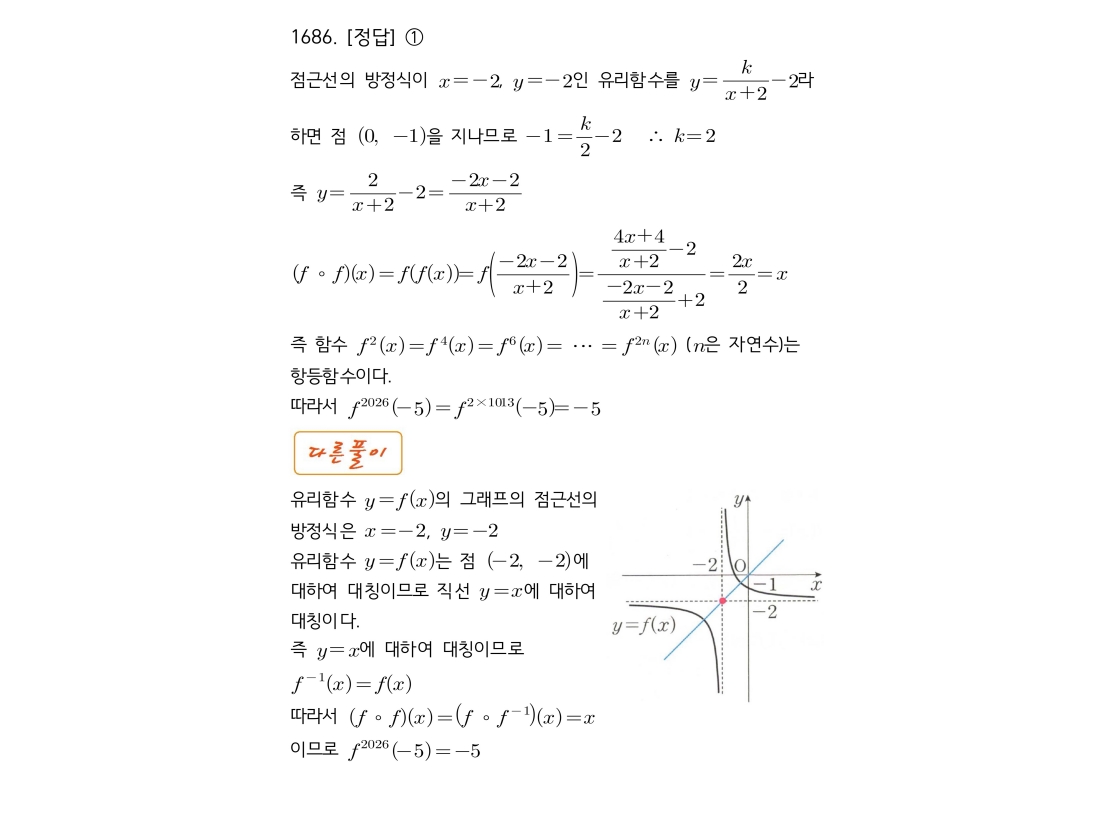 1686. [정답] ①
점근선의 방정식이 x=−2, y=−2인 유리함수를 y=k/(x+2)−2라
하면 점 (0, −1)을 지나므로 −1=k/2−2 ∴ k=2
즉 y=2/(x+2)−2=(−2x−2)/(x+2)
(f∘f)(x)=f(f(x))=f((−2x−2)/(x+2))=((4x+4)/(x+2)−2)/((−2x−2)/(x+2)+2)=2x/2=x
즉 함수 f²(x)=f⁴(x)=f⁶(x)= ⋯ =f²ⁿ(x) (n은 자연수)는
항등함수이다.
따라서 f²⁰²⁶(−5)=f²ˣ¹⁰¹³(−5)=−5
다른풀이
유리함수 y=f(x)의 그래프의 점근선의
방정식은 x=−2, y=−2
유리함수 y=f(x)는 점 (−2, −2)에
대하여 대칭이므로 직선 y=x에 대하여
대칭이다.
즉 y=x에 대하여 대칭이므로
f⁻¹(x)=f(x)
따라서 (f∘f)(x)=(f∘f⁻¹)(x)=x
이므로 f²⁰²⁶(−5)=−5
y
−2 O
−1 x
−2
y=f(x)